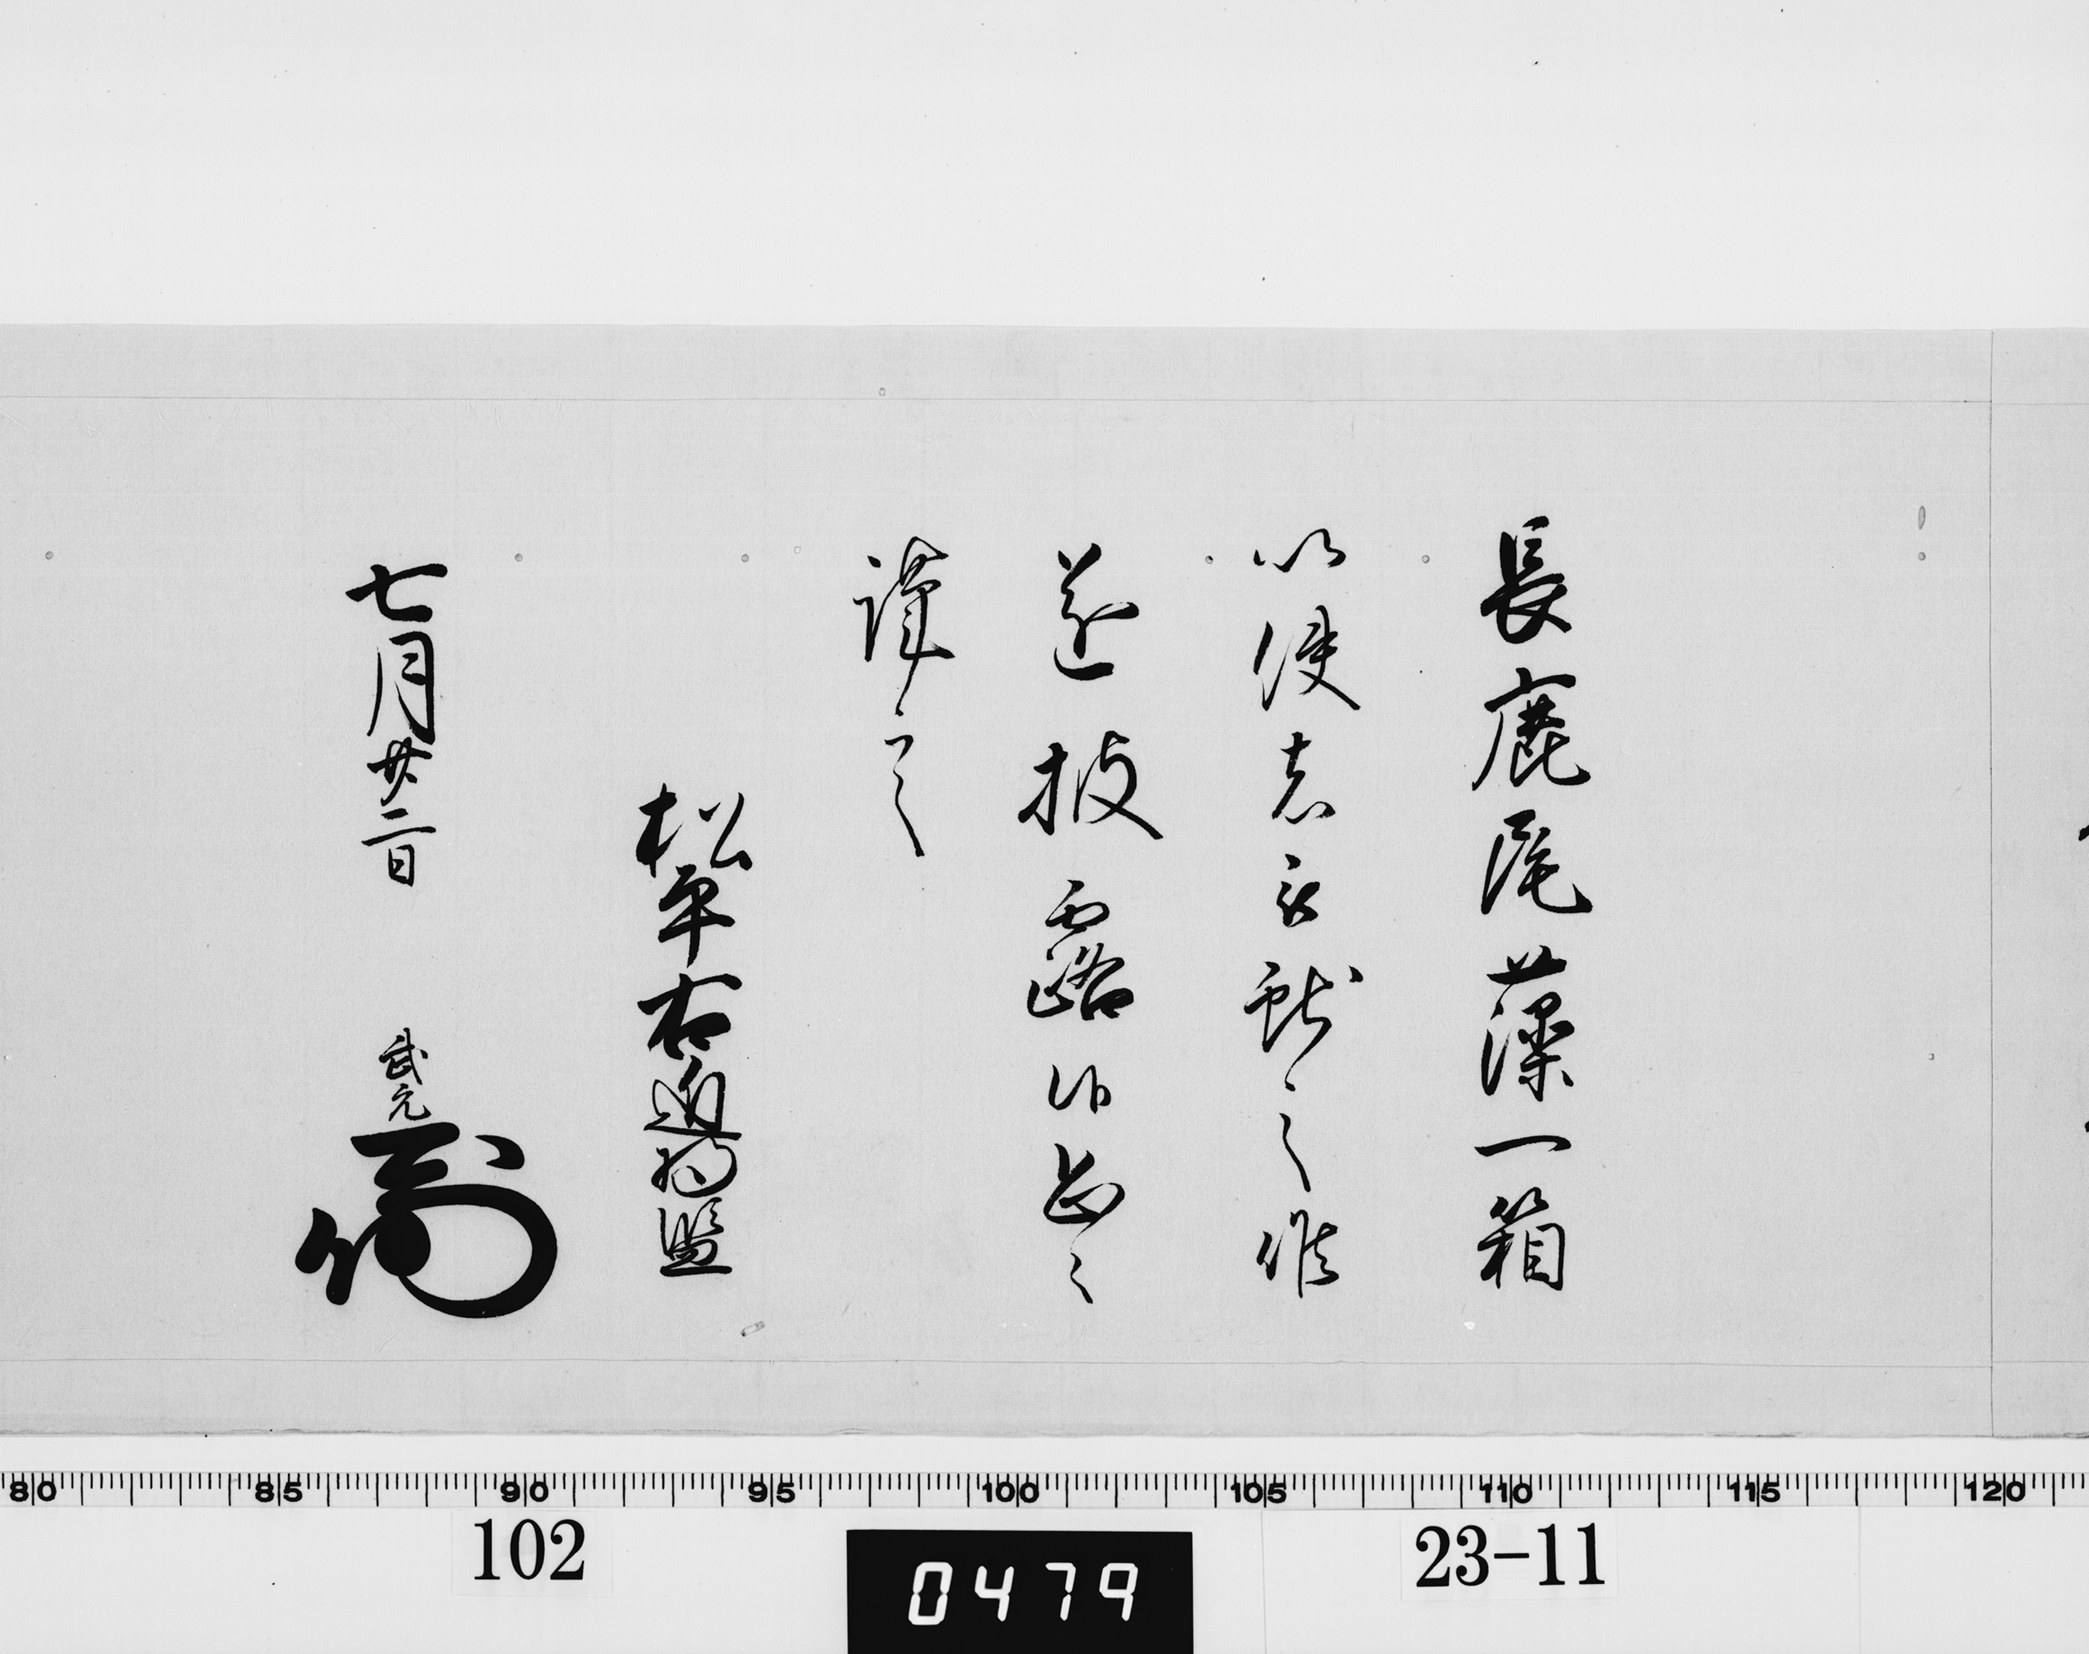 長鹿尾藻一箱
以使者被献之候
遂披露候処
謹言
松平右近将監
七月廿二日
武元
80 85 90 95 100 105 110 115 120
102
0479
23-11